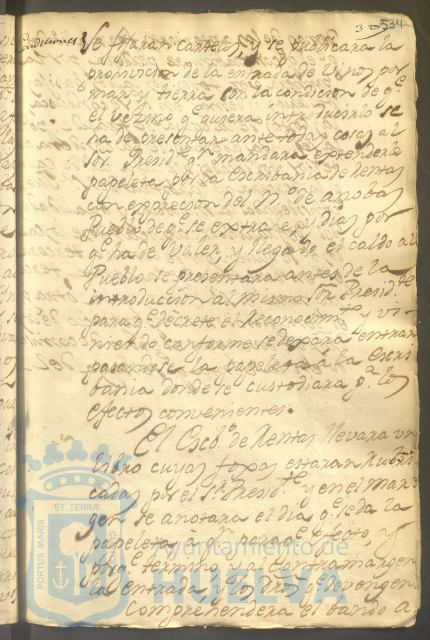 534
Condiciones
Se fijaran carteles, y se publicara la
promision de la entrada de vinos por
mar y tierra con la condicion de qe
el vezino qe quisera introducirlo se
ha de presentar ante todas cosas al
Sor. Presidte qn mandara extenderle
papeleta por la Escribania de Rentas
con expresion del No de arrobas
Pueblo de qe se extrae, y dias por
qe ha de valer, y llegado el caldo al
Pueblo se presentara antes de la
introduccion al mismo Sr. Presidte
para qe decrete el Reconocimto y vi-
niendo conforme se dexara entrar
pasandose la papeleta á la Escri-
bania donde se custodiara pa los
efectos convenientes.
El Escbo de Rentas llevara un
libro cuyas foxas estaran Rubri-
cadas por el Sr. Presidte y en el mar-
gen se anotara el dia qe se da la
papeleta a qn para qe efecto, y
por qe termino y al contramargen
la entrada, y los dros qe devenguen
Comprehendera el bando a
PORTUS MARIS
ET TERRÆ
Ayuntamiento de
HUELVA